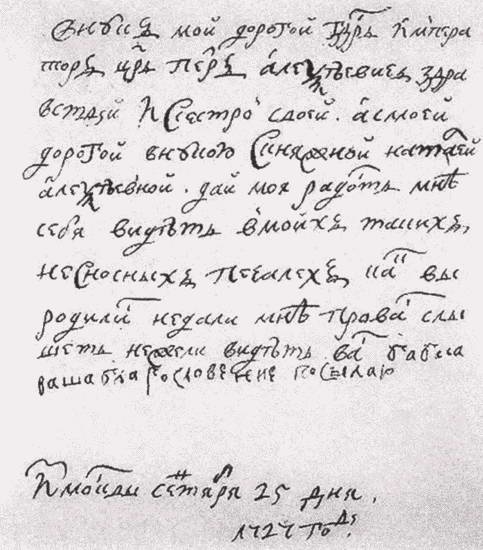 Внукъ мой дорогой гдрь импера
торъ црь Петръ Алексѣевичъ здра
вствуй и сестрою своей. а смоей
дорогой внукою с княжной натальей
алексѣевной. дай моя радость мнѣ
себя видѣть вмоихъ такихъ
несносныхъ печалехъ как вы
родились недали мнѣ про вас слы
шеть нежели видѣть вас бабка
ваша благословение посылаю
Из москвы сентября 25 дня.
1727 году.